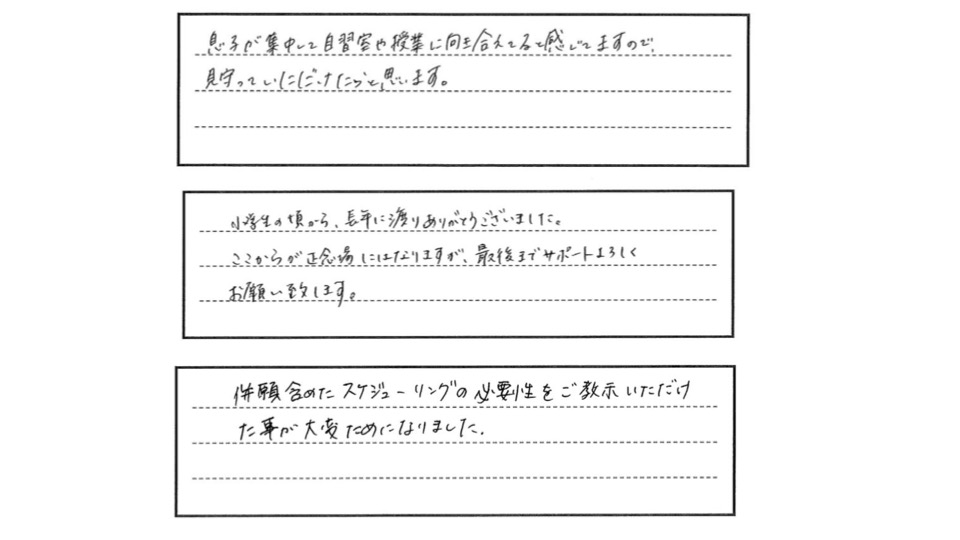 息子が集中して自習室や授業に向き合えてると感じてますので、
見守っていただけたらと思います。
小学生の頃から、長年に渡りありがとうございました。
ここからが正念場にはなりますが、最後までサポートよろしく
お願い致します。
併願含めたスケジューリングの必要性をご教示いただけ
た事が大変ためになりました.